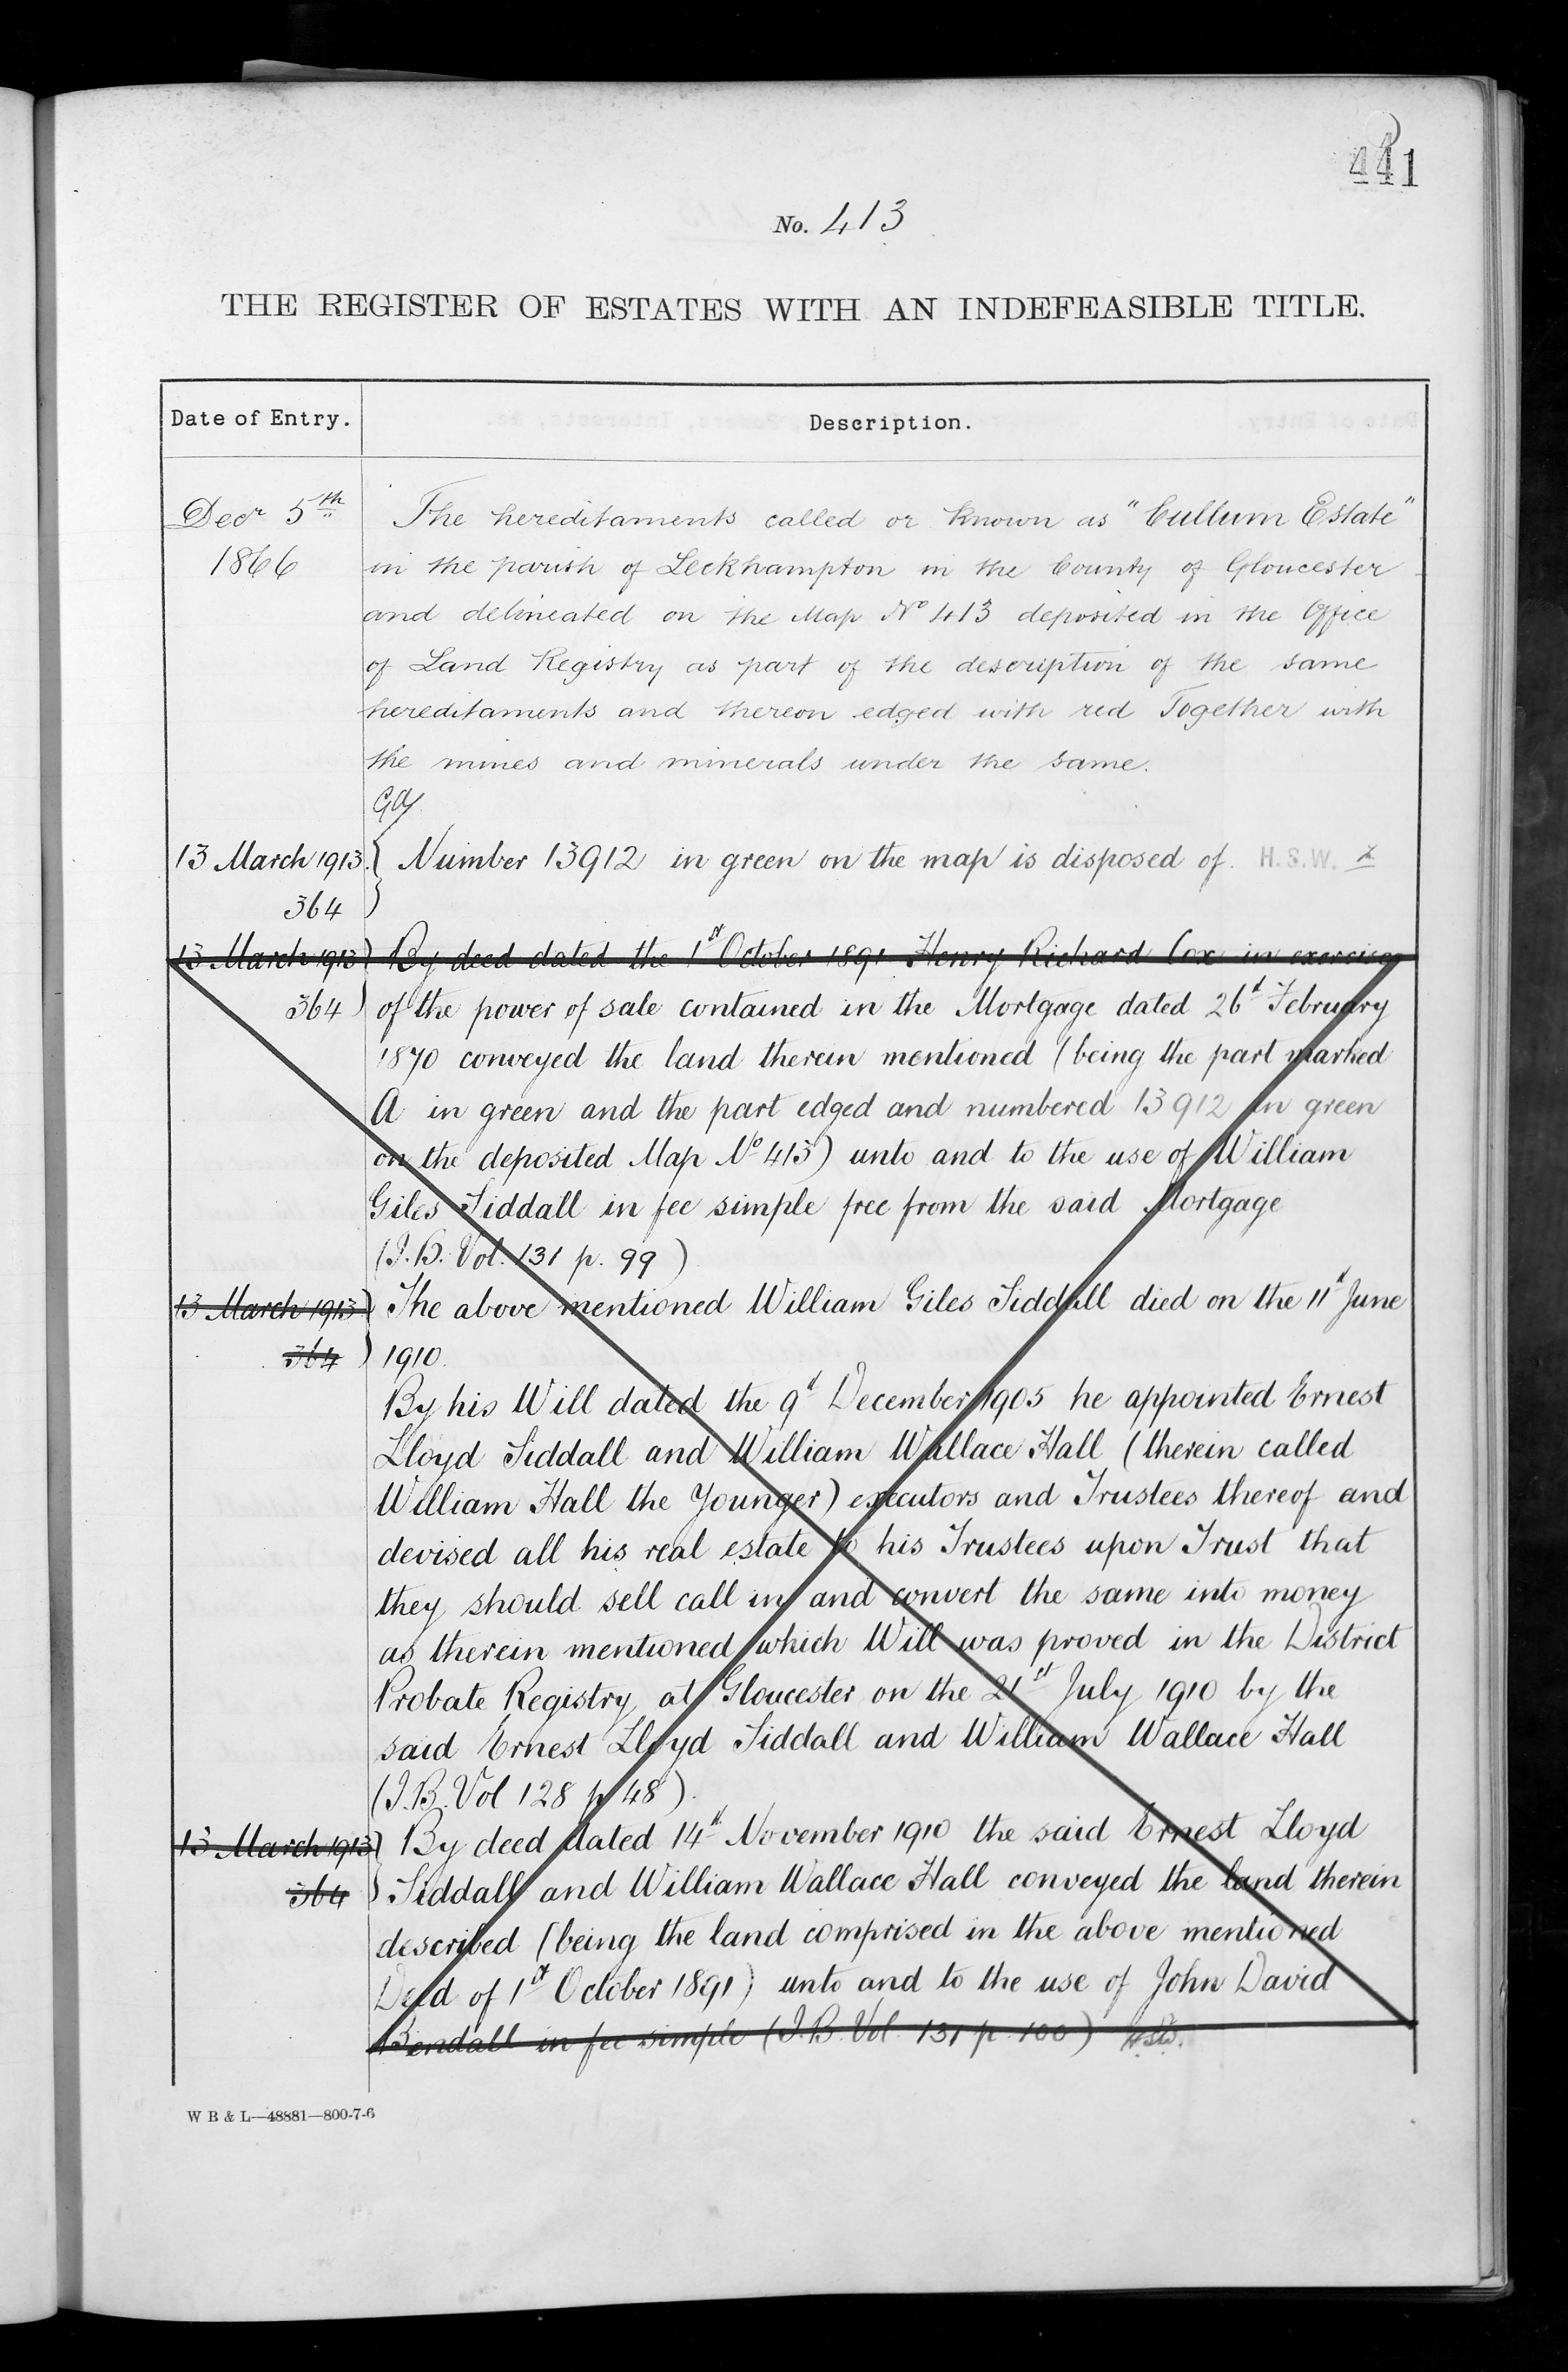 441
No. 413
THE REGISTER OF ESTATES WITH AN INDEFEASIBLE TITLE.
Date of Entry.
Description.
Decr 5th
1866
The hereditaments called or known as "Cullum Estate"
in the parish of Leckhampton in the County of Gloucester
and delineated on the Map No 413 deposited in the Office
of Land Registry as part of the description of the same
hereditaments and thereon edged with red Together with
the mines and minerals under the same.
13 March 1913
364
Number 13912 in green on the map is disposed of. H.S.W.
13 March 1913
364
By deed dated the 1st October 1891 Henry Richard Cox in exercise
of the power of sale contained in the Mortgage dated 26th February
1870 conveyed the land therein mentioned (being the part marked
A in green and the part edged and numbered 13912 in green
on the deposited Map No 413) unto and to the use of William
Giles Siddall in fee simple free from the said Mortgage
(I.B. Vol. 131 p. 99)
13 March 1913
364
The above mentioned William Giles Siddall died on the 11th June
1910.
By his Will dated the 9th December 1905 he appointed Ernest
Lloyd Siddall and William Wallace Hall (therein called
William Hall the Younger) executors and Trustees thereof and
devised all his real estate to his Trustees upon Trust that
they should sell call in and convert the same into money
as therein mentioned which Will was proved in the District
Probate Registry at Gloucester on the 21st July 1910 by the
said Ernest Lloyd Siddall and William Wallace Hall
(I.B. Vol 128 p 48).
13 March 1913
364
By deed dated 14th November 1910 the said Ernest Lloyd
Siddall and William Wallace Hall conveyed the land therein
described (being the land comprised in the above mentioned
Deed of 1st October 1891) unto and to the use of John David
Bendall in fee simple (I.B. Vol. 131 p. 100)
W B & L—48881—800-7-6